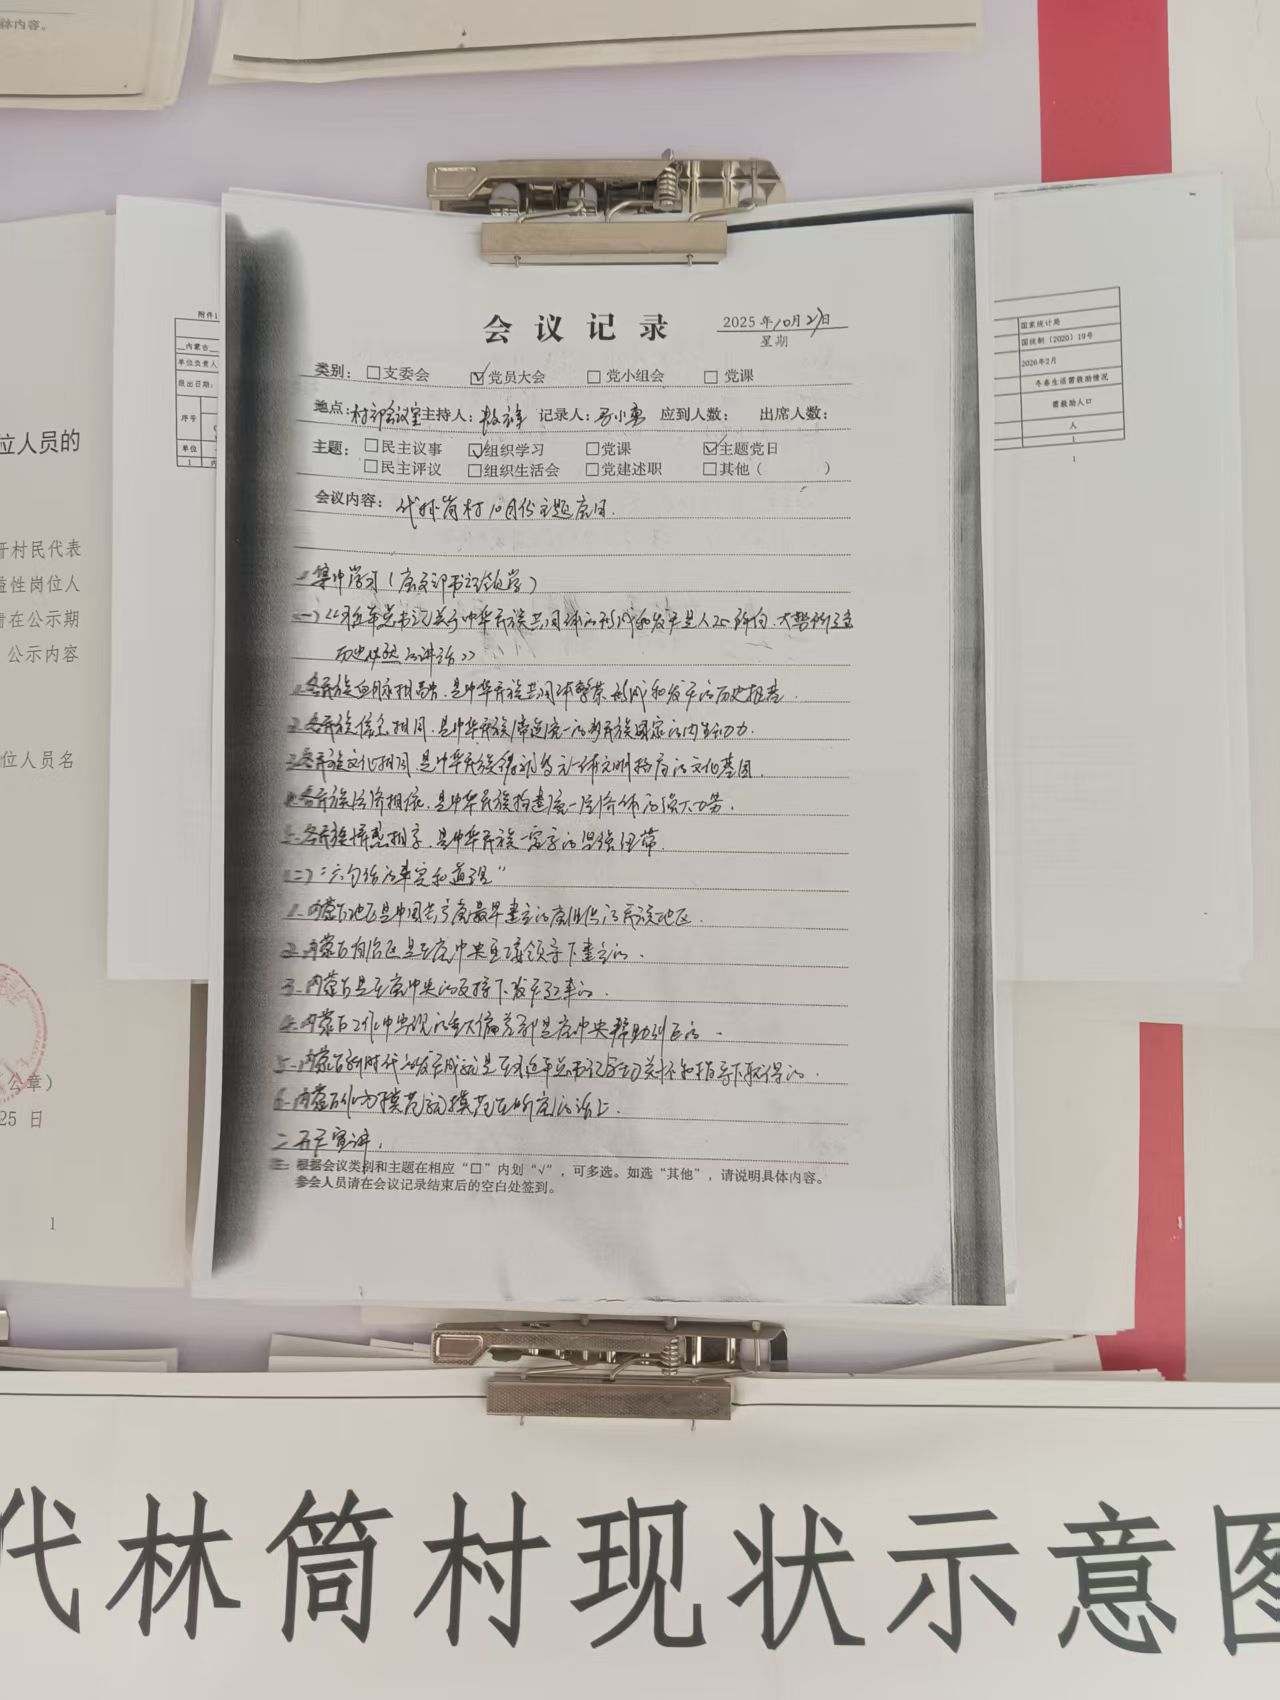 体内容。
会议记录
2025年10月27日
星期
类别：□支委会 ☑党员大会 □党小组会 □党课
地点：村部会议室 主持人： 记录人： 应到人数： 出席人数：
主题：□民主议事 ☑组织学习 □党课 ☑主题党日
□民主评议 □组织生活会 □党建述职 □其他（ ）
会议内容：代林筒村10月份主题党日.
一集中学习（党支部书记领学）
一）《习近平总书记关于中华民族共同体的形成和发展是人心所向.大势所趋
历史必然的讲话》
1.各民族血脉相融.是中华民族共同体繁荣.形成和发展的历史根基.
2.各民族信念相同.是中华民族缔造统一的多民族国家的内生动力.
3.各民族文化相同.是中华民族铸就多元一体文明格局的文化基因.
4.各民族经济相依.是中华民族构建统一经济体的强大力量.
5.各民族情感相亲.是中华民族一家亲的坚强纽带.
(二)"六句话的事实和道理"
1.内蒙古地区是中国共产党最早建立党组织的民族地区.
2.内蒙古自治区是在党中央直接领导下建立的.
3.内蒙古是在党中央的支持下发展起来的.
4.内蒙古工作中出现的重大偏差都是党中央帮助纠正的.
5.内蒙古新时代的发展成就是在习近平总书记亲切关怀和指导下取得的.
6.内蒙古作为模范词模范在听党的话上.
二开展宣讲.
注：根据会议类别和主题在相应“□”内划“√”，可多选。如选“其他”，请说明具体内容。
参会人员请在会议记录结束后的空白处签到。
附件1
内蒙古
单位负责人
报出日期：
序号
单位
1
国家统计局
国统制〔2020〕19号
2026年2月
冬春生活需救助情况
需救助人口
人
1
1
位人员的
开村民代表
益性岗位人
请在公示期
公示内容
位人员名
公章）
25 日
1
代林筒村现状示意图